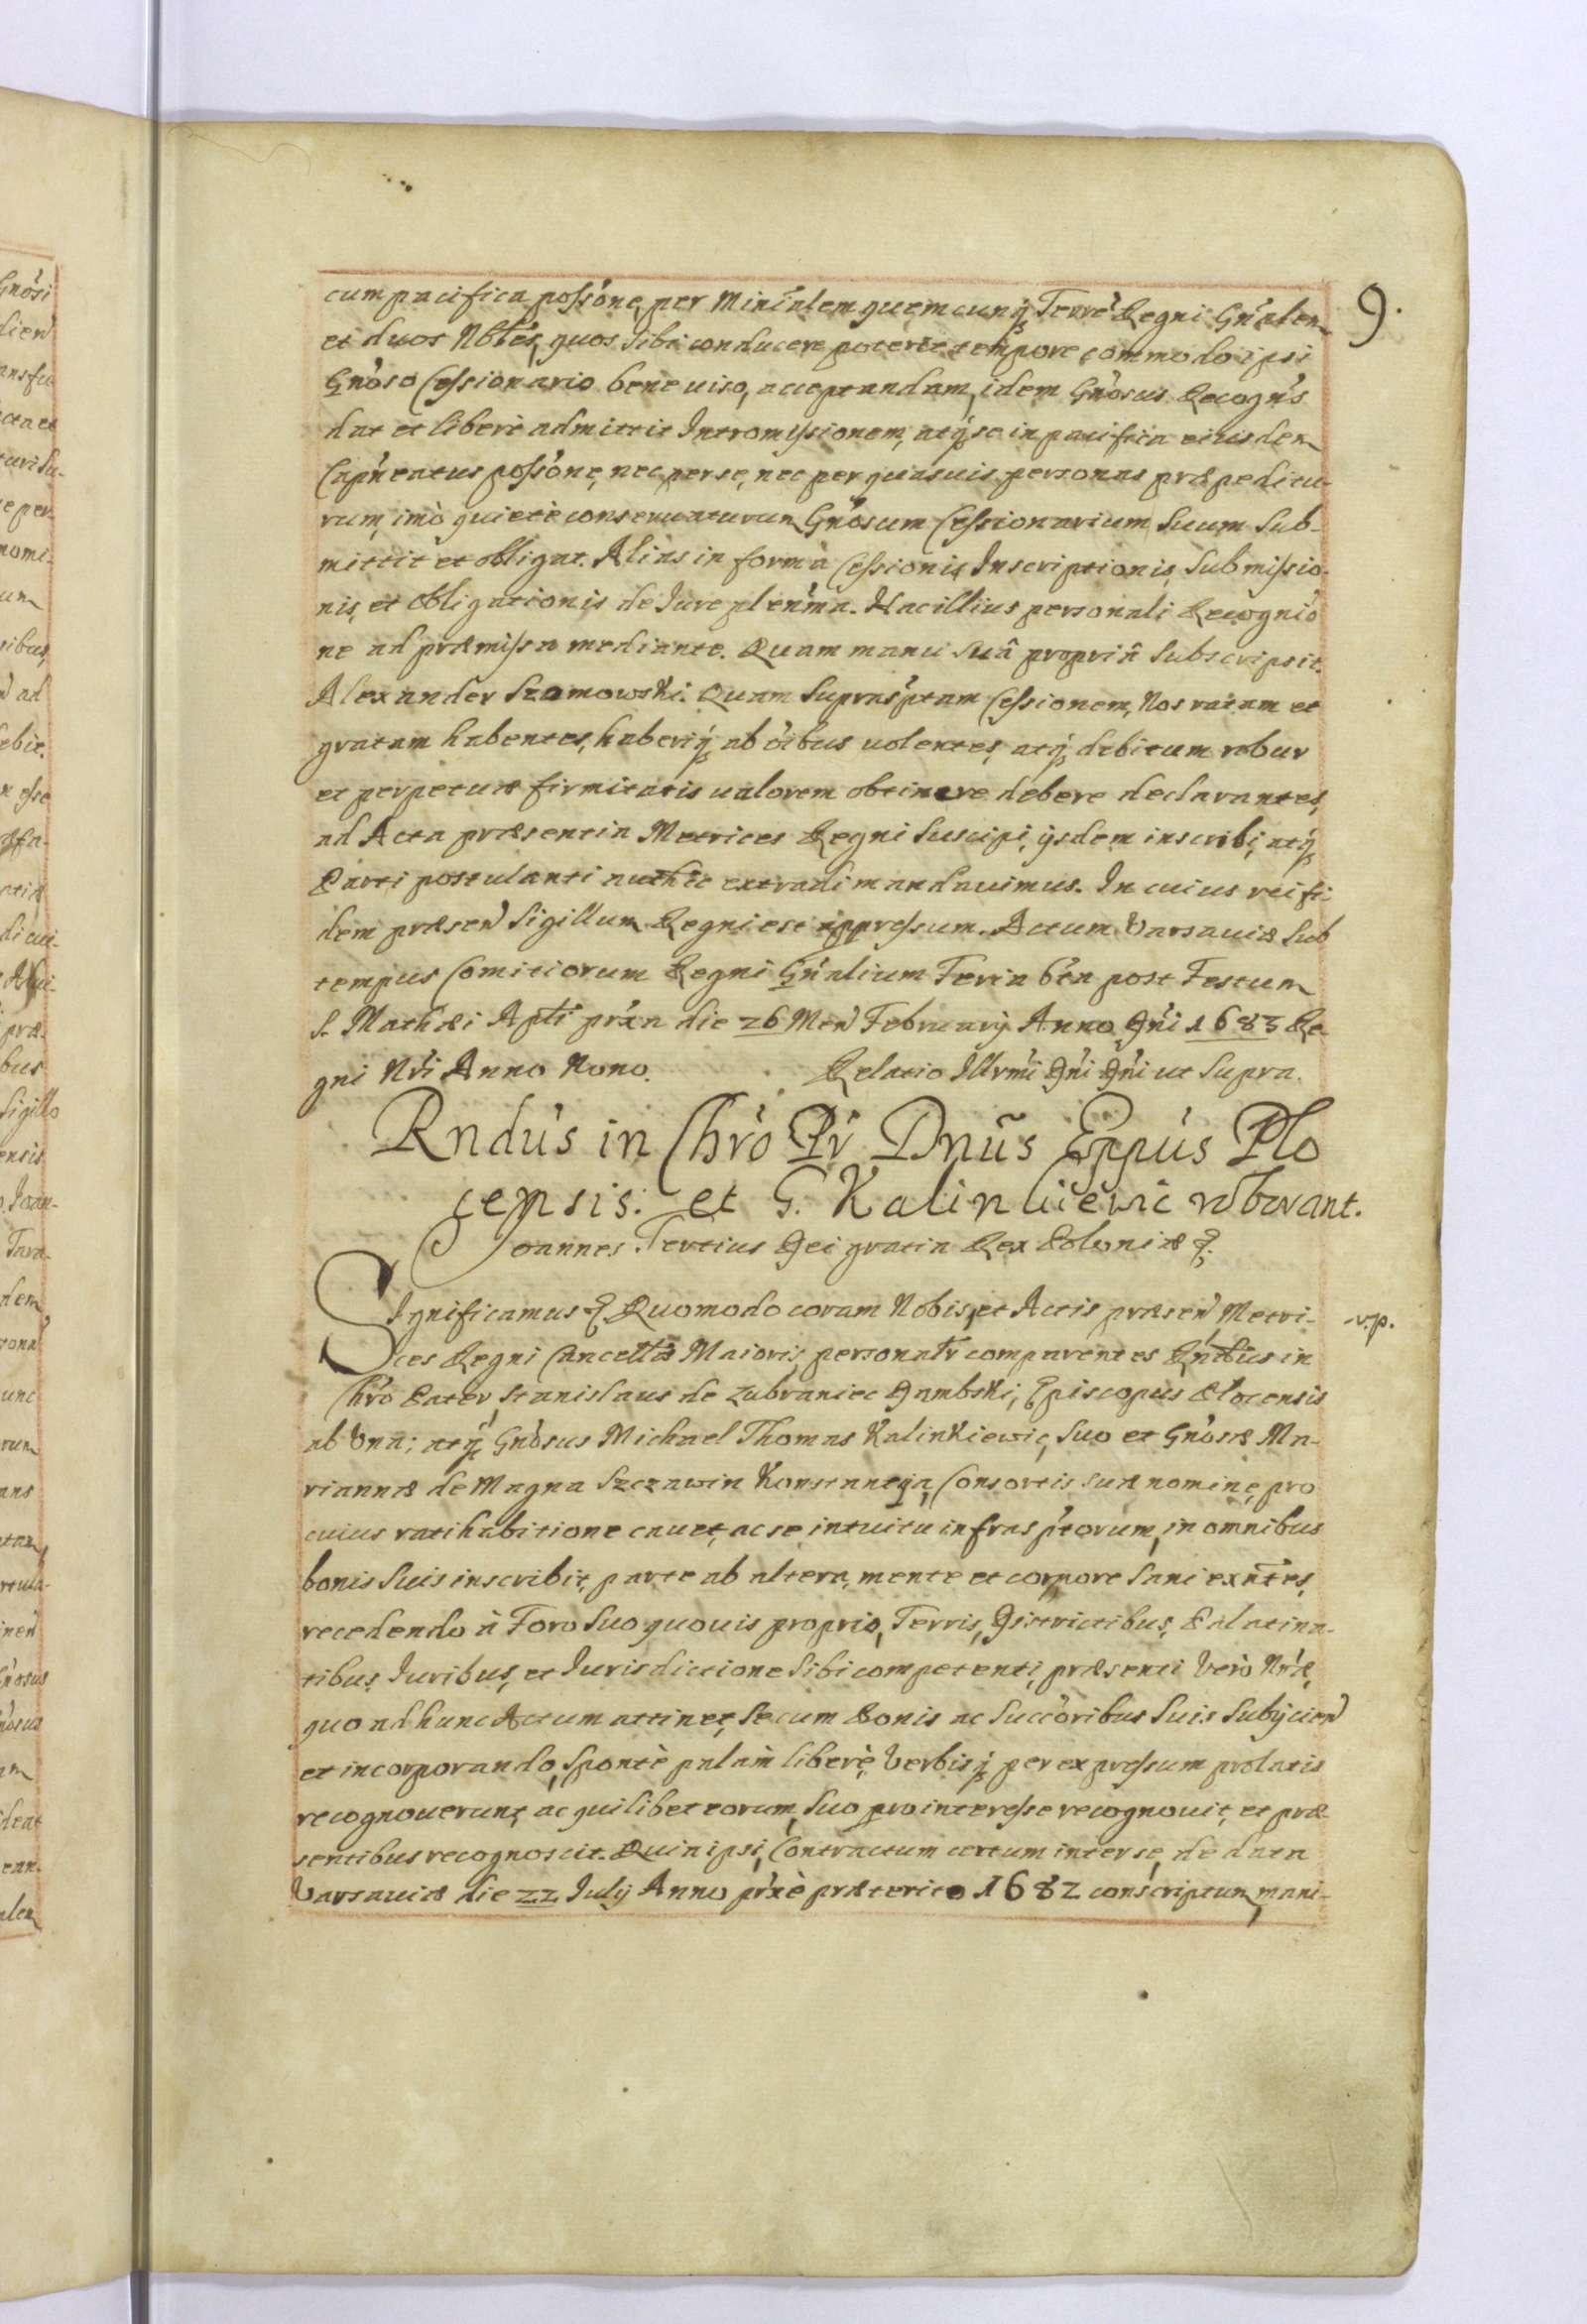 9.
cum pacifica possōne, per Miniālem quemcunq; Terrē Regni Gn̄alem
et duos Nobˡēs, quos sibi conducere poterit tempore commodo ipsi
Gnōso Cessionario bene uiso, acceptandam, idem Gnōsus Recogn̄s
dat et liberè admittit Intromissionem, atq; se in pacifica eiusdem
Capn̄eatus possōne, nec per se, nec per quasuis personas præpeditu-
rum, imò quietè conseruaturum Gnōsum Cessionarium Suum Sub-
mittit et obligat. Alias in formâ Cessionis Inscriptionis, Submissio-
nis, et Obligationis de Iure plenm̄a. Hac illius personali Recogniō
ne ad præmissa mediante. Quam manu suâ propriâ subscripsit.
Alexander Szamowski. Quam suprasc̄ptam Cessionem, Nos ratam et
gratam habentes, haberiq; ab oībus uolentes, atq; debitum robur
et perpetuæ firmitatis ualorem obtinere debere declarantes,
ad Acta præsentia Metrices Regni suscipi, ijsdem inscribi, atq;
Parti postulanti authīc extradi mandauimus. In cuius rei fi-
dem præsen̄ Sigillum Regni est appressum. Actum Varsauiæ Sub
tempus Comitiorum Regni Gn̄alium Feria 6ta post Festum
S. Mathæi Apˡi prx̄a die 26 Men̄ February Anno Dn̄i 1683 Re-
gni Nr̄i Anno Nono. Relatio Illrmi Dn̄i Dn̄i ut Supra.
Rndūs in Chrō Pr̄ Dnūs Eppūs Plo
censis. et G. Kalinkiewic roborant.
Joannes Tertius Dei gratia Rex Poloniæ &.
Significamus & Quomodo coram Nobis, et Actis præsen̄ Metri-
v.p.
ces Regni Cancellˢ Maioris, personalr̄ comparentes Rn̄dus in
Chrō Pater Stanislaus de Zubraniec Dambski, Episcopus Plocensis
ab Una; atq; Gnōsus Michael Thomas Kalinkiewic, suo et Gnōsæ Ma-
riannæ de Magna Szczawin Konstantyja, Consortis suæ nomine, pro
cuius ratihabitione cauet, ac se, intuitu infrasc̄ptorum, in omnibus
bonis suis inscribit, parte ab altera, mente et corpore sani exn̄tes,
recedendo à Foro suo quouis proprio, Terris, Districtibus, Palatina-
tibus, Iuribus, et Iurisdictione sibi competenti, præsenti Verò Nr̄æ,
quo ad hunc Actum attinet, se cum Bonis ac Succōribus suis subijcien̄
et incorporando, Spontè palàm liberè, Verbisq; per expressum prolatis
recognouerunt, ac quilibet eorum, suo pro interesse recognouit, et præ-
sentibus recognoscit. Quia ipsi, Contractum certum inter se, de data
Varsauiæ die 22 July Anno prx̄è præterito 1682 conscriptum, mani-